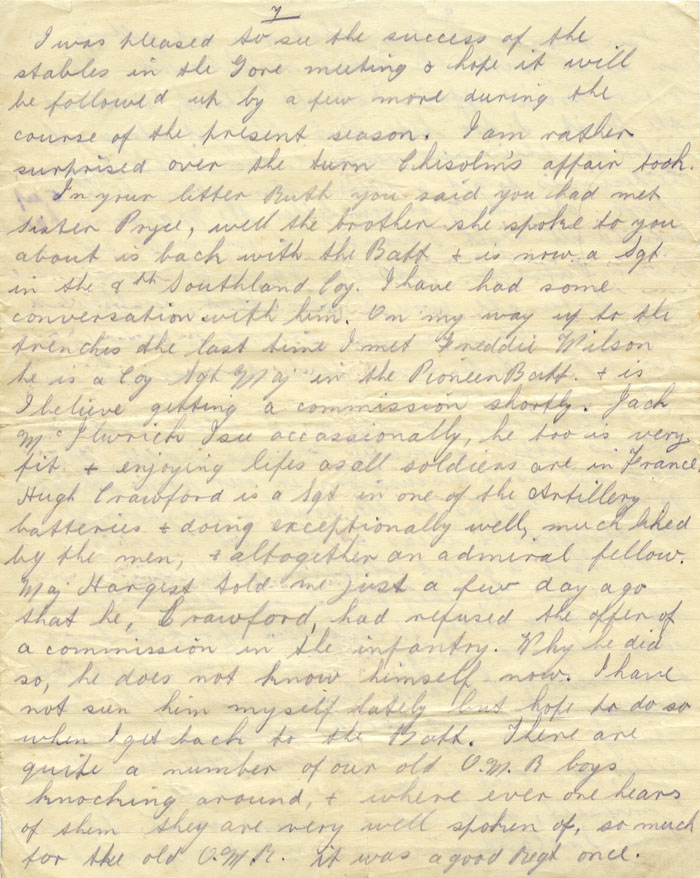 7
I was pleased to see the success of the
stables in the Gore meeting & hope it will
be followed up by a few more during the
course of the present season. I am rather
surprised over the turn Chisolm's affair took.
In your letter Ruth you said you had met
Sister Pryce, well the brother she spoke to you
about is back with the Batt & is now a Sgt
in the 8th Southland Coy. I have had some
conversation with him. On my way up to the
trenches the last time I met Freddie Wilson
he is a Coy Sgt Maj in the Pioneer Batt. & is
I believe getting a commission shortly. Jack
I see occassionally, he too is very
fit & enjoying lifes as all soldiers are in France.
Hugh Crawford is a Sgt in one of the Artillery
batteries & doing exceptionally well, much liked
by the men, & altogether an admiral fellow.
Maj Hargest told me just a few day ago
that he, Crawford, had refused the offer of
a commission in the infantry. Why he did
so, he does not know himself now. I have
not seen him myself lately but hope to do so
when I get back to the Batt. There are
quite a number of our old O.M.R boys
knocking around, & where ever one hears
of them they are very well spoken of, so much
for the old O.M.R. it was a good Regt once.